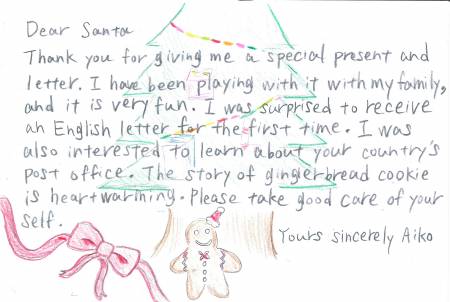 Dear Santa
Thank you for giving me a special present and
letter. I have been playing with it with my family,
and it is very fun. I was surprised to receive
an English letter for the first time. I was
also interested to learn about your country's
post office. The story of gingerbread cookie
is heartwarming. Please take good care of your
self.
Yours sincerely Aiko